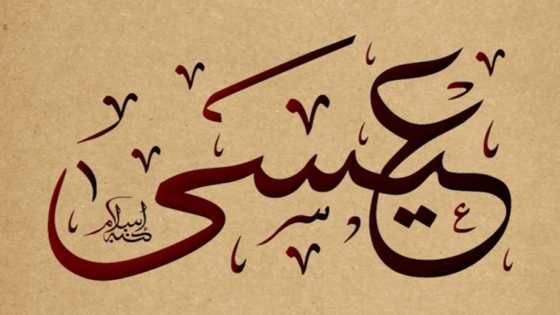 عِيسَىٰ
كتبه إسلام